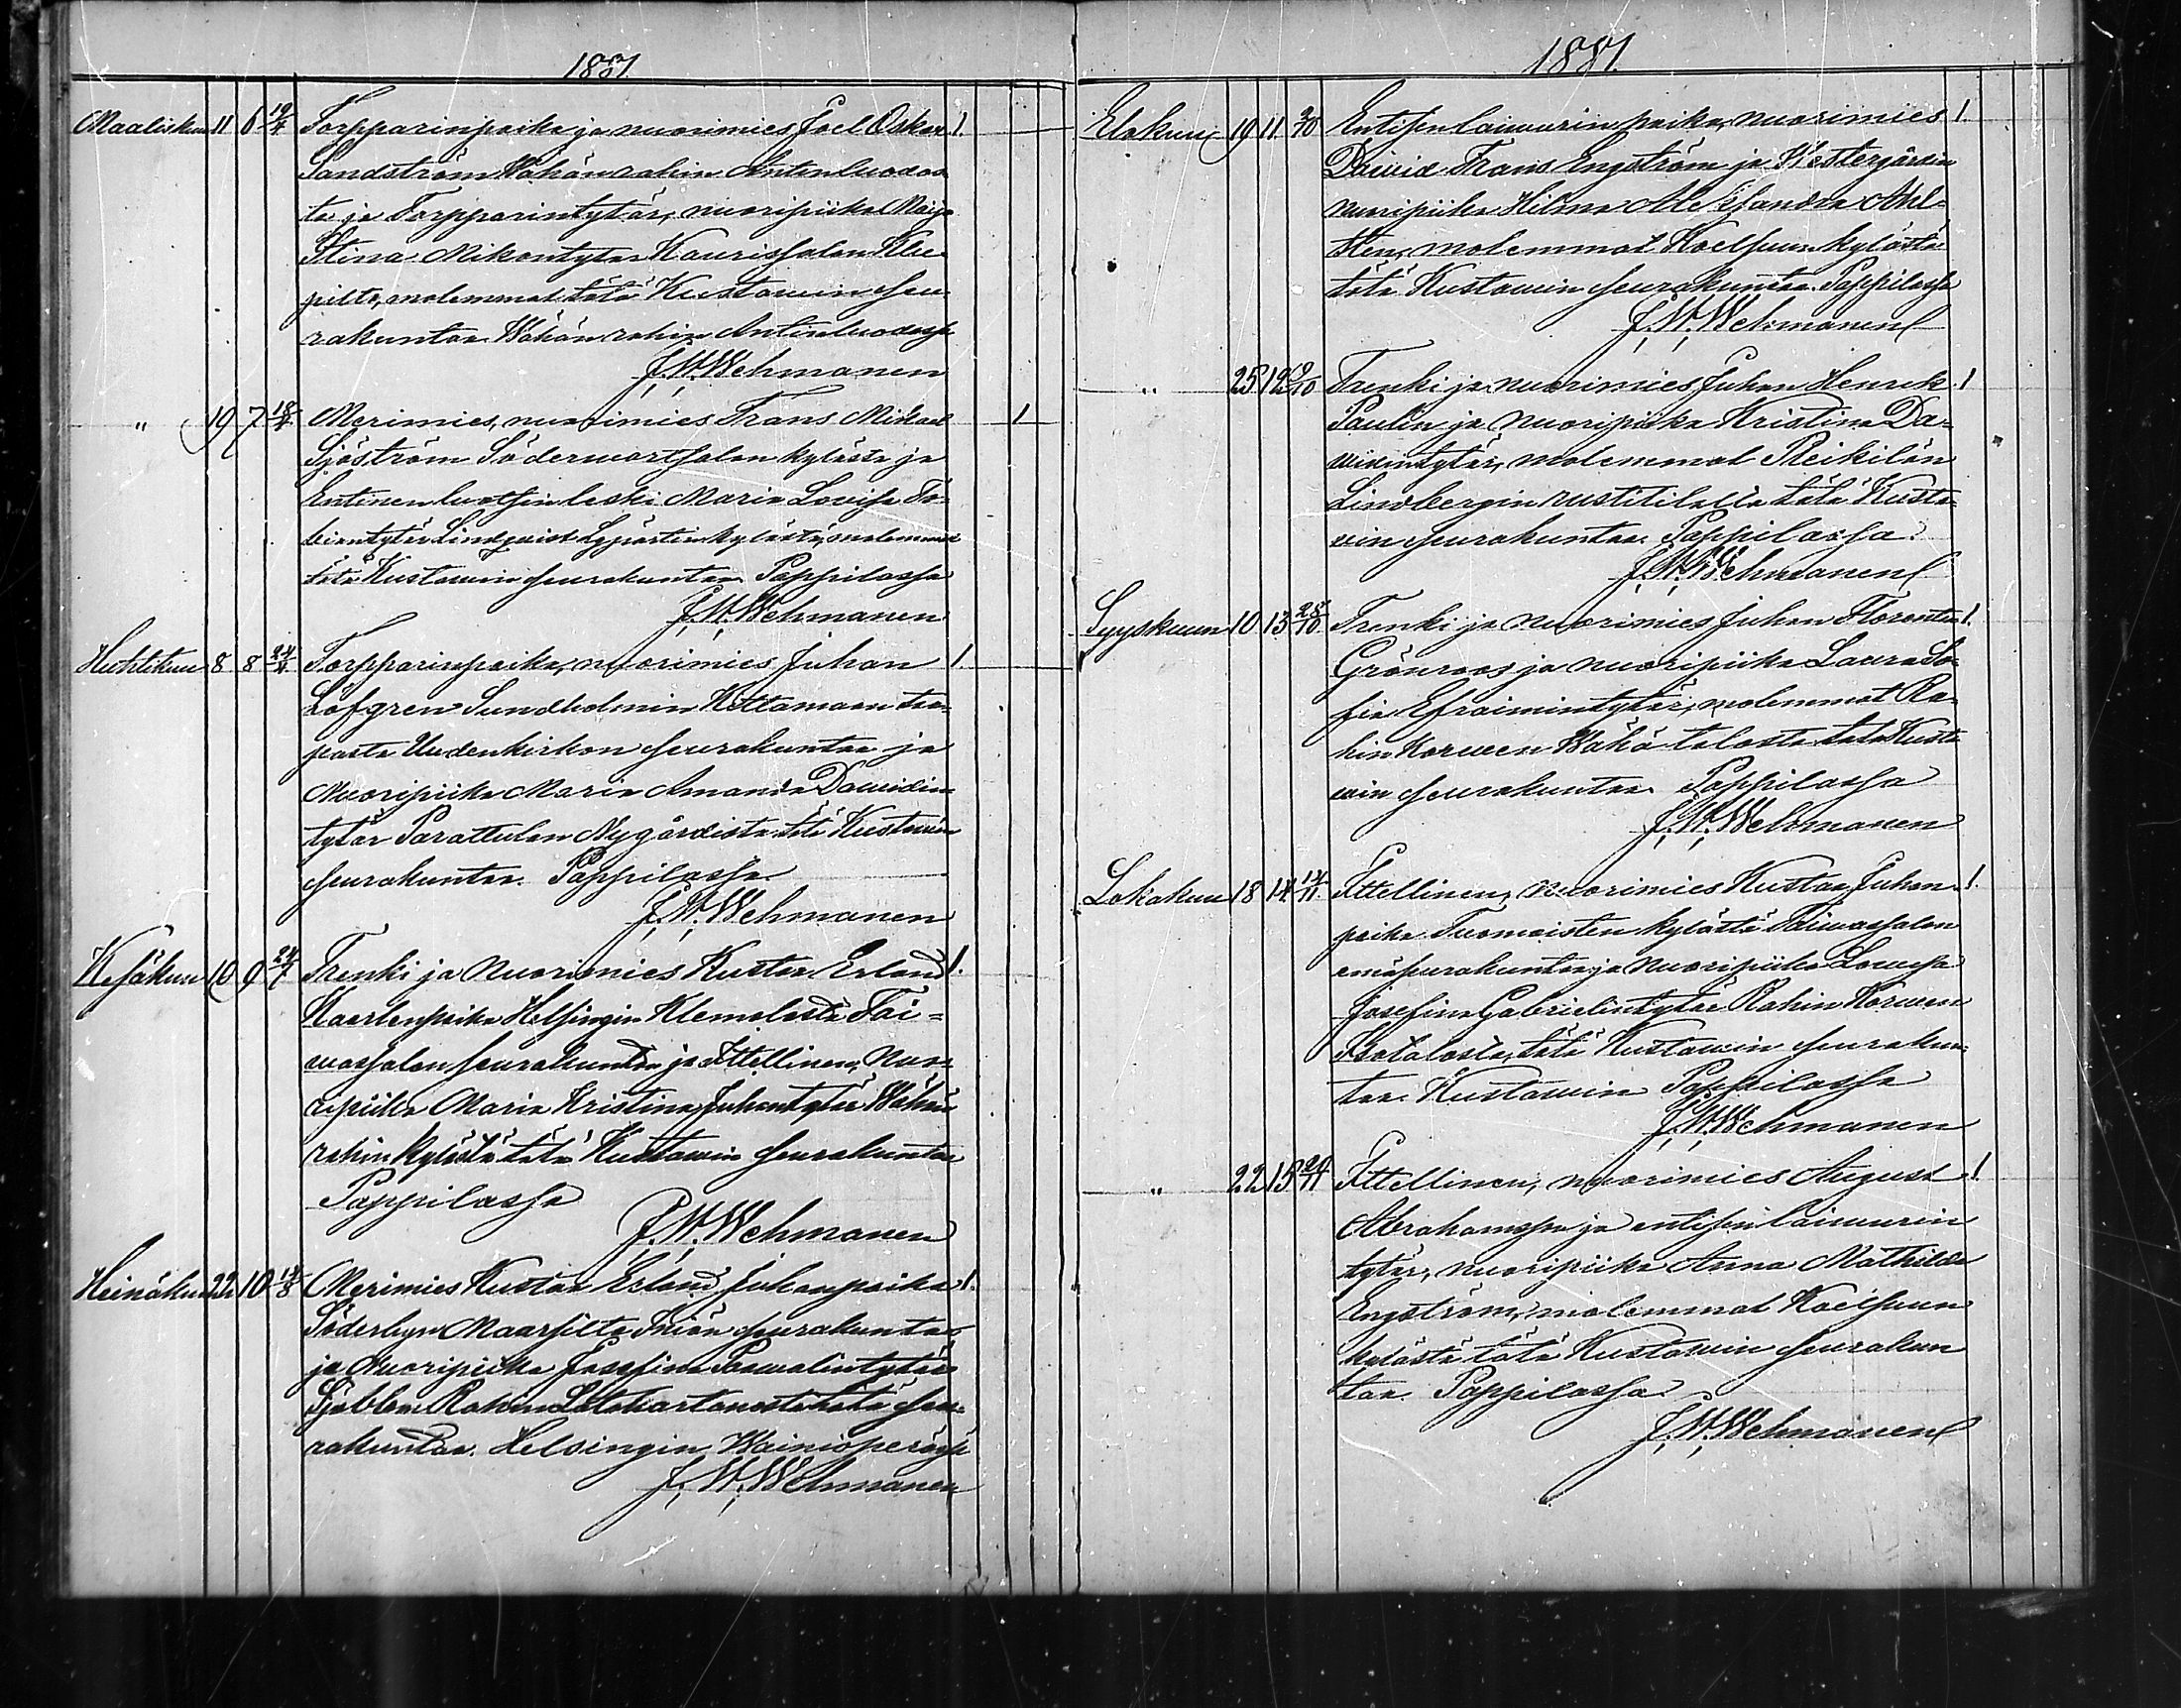 1881.
Maaliskuu 11 6 12/4 Torpparinpoika ja nuorimies Joel Oskar 1.
Sandström Wähänrahin Antinluodos
ta ja Torpparintytär, nuoripiika Maija
Stina Mikontytär Kaurissalon
pilta, molemmat tätä Kustawin seu-
rakuntaa Wähänrahin Antinluodossa
J. W. Wehmanen
" 19 7 18/4 Merimies, nuorimies Frans Mikael 1
Sjöström Söderwartsalon kylästä ja
Entinen luotsin leski Maria Lovisa To-
biantytär Lindqvist Lypertin kylästä, molemmat
tätä Kustawin seurakuntaa Pappilassa
J. W. Wehmanen
Huhtikuu 8 8 24/4 Torpparinpoika, nuorimies Juhan 1.
Löfgren Sundholmin Kettamaan
Uudenkirkon seurakuntaa ja
Nuoripiika Maria Amanda Dawidin-
tytär Parattulan Nygårdista tätä Kustawin
seurakuntaa. Pappilassa
J. W. Wehmanen
Kesäkuu 10 9 24/7 Trenki ja Nuorimies Kustaa Erland 1.
Kaarlenpoika Helsingin Klemolasta Tai-
wassalon seurakuntaa ja Ittellinen, Nuo-
ripiika Maria Kristina Juhontytär Wähän
rahin kylästä tätä Kustawin seurakuntaa
Pappilassa
J. W. Wehmanen
Heinäkuu 22 10 14/8 Merimies Kustaa Erland Juhanpoika 1.
Söderbyn Iniön seurakuntaa
ja Nuoripiika Josefina Paawalintytär
Sjöblom Rahin tätä seu-
rakuntaa. Helsingin Wainionperässä
J. W. Wehmanen
1881.
Elokuu 19 11 2/10 Entisen laiwurin poika, nuorimies 1.
Dawid Frans Engström ja Westergårdin
nuoripiika Hilma Aleksandra Ahl-
sten, molemmat Koelsuun kylästä
tätä Kustawin seurakuntaa. Pappilassa
J. W. Wehmanen
" 25 12 9/10 Trenki ja nuorimies Juhan Henrik 1
Paulin ja Nuoripiika Kristina Da-
widintytär, molemmat Reikilän
Lindbergin rustitilalla tätä Kusta-
win seurakuntaa. Pappilassa.
J. W. Wehmanen
Syyskuun 10 13 28/10 Trenki ja Nuorimies Juhan Florentin 1.
Grönroos ja nuoripiika Laura So-
fia Efraimintytär, molemmat Ra-
hin Korween Wähä talosta tätä Kusta
win seurakuntaa Pappilassa
J. W. Wehmanen
Lokakuu 18 14 14/11 Ittellinen, nuorimies Kustaa Juhan 1.
poika Tuomoisten kylästä Taiwassalon
emäseurakuntaa ja Nuoripiika Lowisa
Josefina Gabrielintytär Rahin Korween
Isotalosta, tätä Kustawin seurakun-
taa. Kustawin Pappilassa
J. W. Wehmanen
" 22 15 20/11 Ittellinen, nuorimies August 1.
Abrahamsson ja entisen laiwurin
tytär, nuoripiika Anna Mathilda
Engström, molemmat Koelsuun
kylästä tätä Kustawin seurakun
taa. Pappilassa
J. W. Wehmanen